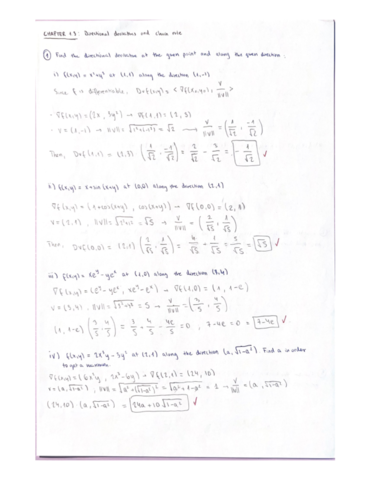 CHAPTER 1.3 Directional derivatives and chain rule
① Find the directional derivative at the given point and along the given direction.
i) f(x,y) = x²+y³ at (1,1) along the direction (1,-1)
Since f is differentiable, Dvf(x,y) = < ∇f(x,y), v/‖v‖ >
- ∇f(x,y) = (2x, 3y²) → ∇f(1,1) = (2,3)
- v = (1,-1) → ‖v‖ = √(1²+(-1)²) = √2 → v/‖v‖ = (1/√2, -1/√2)
Then, Dvf(1,1) = (2,3) (1/√2, -1/√2) = 2/√2 - 3/√2 = -1/√2 ✓
ii) f(x,y) = x+sin(x+y) at (0,0) along the direction (2,1)
∇f(x,y) = (1+cos(x+y), cos(x+y)) → ∇f(0,0) = (2,1)
v = (2,1), ‖v‖ = √(2²+1²) = √5 → v/‖v‖ = (2/√5, 1/√5)
Then, Dvf(0,0) = (2,1) (2/√5, 1/√5) = 4/√5 + 1/√5 = 5/√5 = √5 ✓
iii) f(x,y) = xe^y - ye^x at (1,0) along the direction (3,4)
∇f(x,y) = (e^y - ye^x, xe^y - e^x) → ∇f(1,0) = (1, 1-e)
v = (3,4), ‖v‖ = √(3²+4²) = 5 → v/‖v‖ = (3/5, 4/5)
(1, 1-e) (3/5, 4/5) = 3/5 + 4/5 - 4e/5 = 0, 7-4e = 0 → 7-4e ✓
iv) f(x,y) = 2x³y - 3y² at (2,1) along the direction (a, √(1-a²)) Find a in order
to get a maximum
∇f(x,y) = (6x²y, 2x³-6y) → ∇f(2,1) = (24,10)
v = (a, √(1-a²)), ‖v‖ = √(a²+(√(1-a²))²) = √(a²+1-a²) = 1 → v/‖v‖ = (a, √(1-a²))
(24,10) (a, √(1-a²)) = 24a+10√(1-a²) ✓